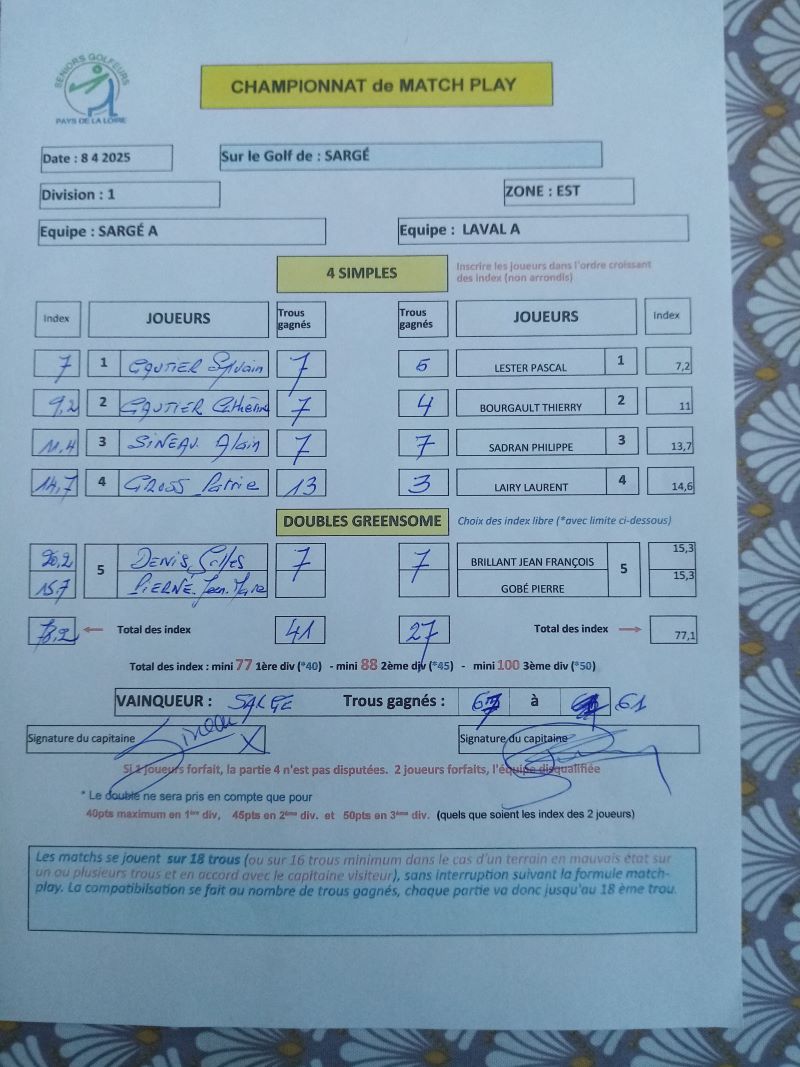 SENIORS GOLFEURS
PAYS DE LA LOIRE
CHAMPIONNAT de MATCH PLAY
Date : 8 4 2025 Sur le Golf de : SARGÉ
Division : 1 ZONE : EST
Equipe : SARGÉ A Equipe : LAVAL A
4 SIMPLES Inscrire les joueurs dans l'ordre croissant
des index (non arrondis)
Index JOUEURS Trous gagnés Trous gagnés JOUEURS Index
7 1 GAUTIER Sylvain 7 6 LESTER PASCAL 1 7,2
9,2 2 GAUTIER 7 4 BOURGAULT THIERRY 2 11
11,4 3 SINEAU Alain 7 7 SADRAN PHILIPPE 3 13,7
14,7 4 GROSS Patrie 13 3 LAIRY LAURENT 4 14,6
DOUBLES GREENSOME Choix des index libre (*avec limite ci-dessous)
20,2 5 DENIS Gilles 7 7 BRILLANT JEAN FRANÇOIS 5 15,3
15,7 PIERNÉ Jean Marie GOBÉ PIERRE 15,3
78,2 Total des index 41 27 Total des index 77,1
Total des index : mini 77 1ère div (*40) - mini 88 2ème div (*45) - mini 100 3ème div (*50)
VAINQUEUR : SARGE Trous gagnés : à 61
Signature du capitaine Sineau Signature du capitaine
Si 1 joueurs forfait, la partie 4 n'est pas disputées. 2 joueurs forfaits, l'équipe disqualifiée
* Le double ne sera pris en compte que pour
40pts maximum en 1ère div, 45pts en 2ème div. et 50pts en 3ème div. (quels que soient les index des 2 joueurs)
Les matchs se jouent sur 18 trous (ou sur 16 trous minimum dans le cas d'un terrain en mauvais état sur
un ou plusieurs trous et en accord avec le capitaine visiteur), sans interruption suivant la formule match-
play. La compatibilsation se fait au nombre de trous gagnés, chaque partie va donc jusqu'au 18 ème trou.